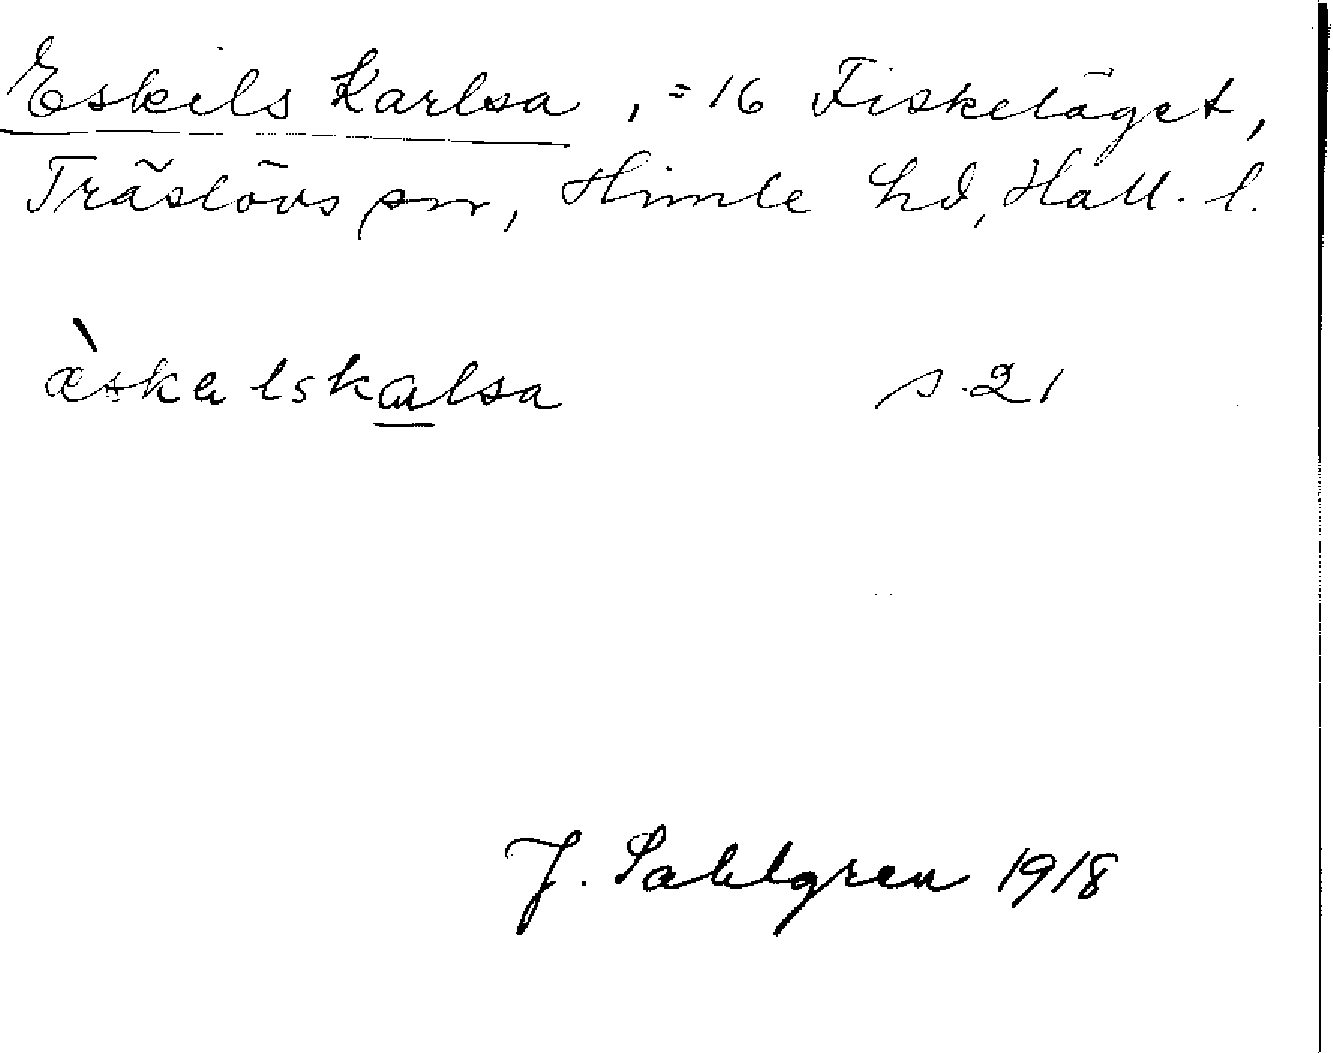 Eskils Karlsa, = 16 Fiskeläget,
Träslövs sn, Himle hd, Hall. l.
æ̀skalskalsa s. 21
J. Sahlgren 1918